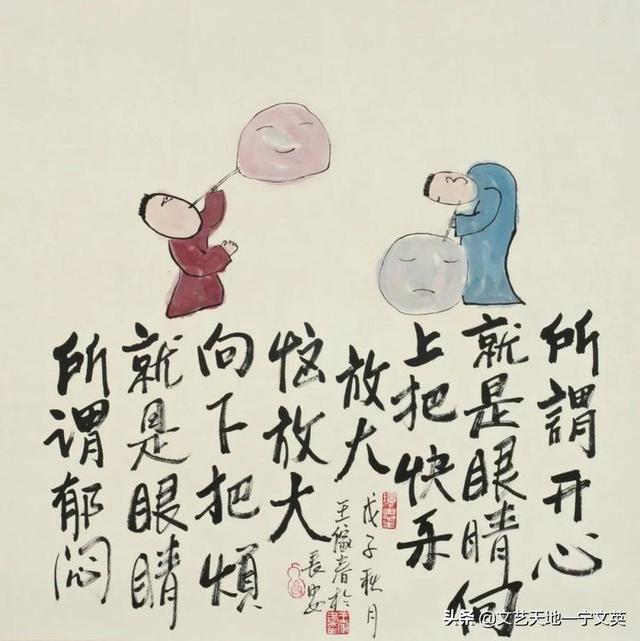 所謂开心
就是眼睛向
上把快乐
放大
所谓郁闷
就是眼睛
向下把煩
恼放大
戊子秋月
王家春於
長安
头条 @文艺天地—宁文英